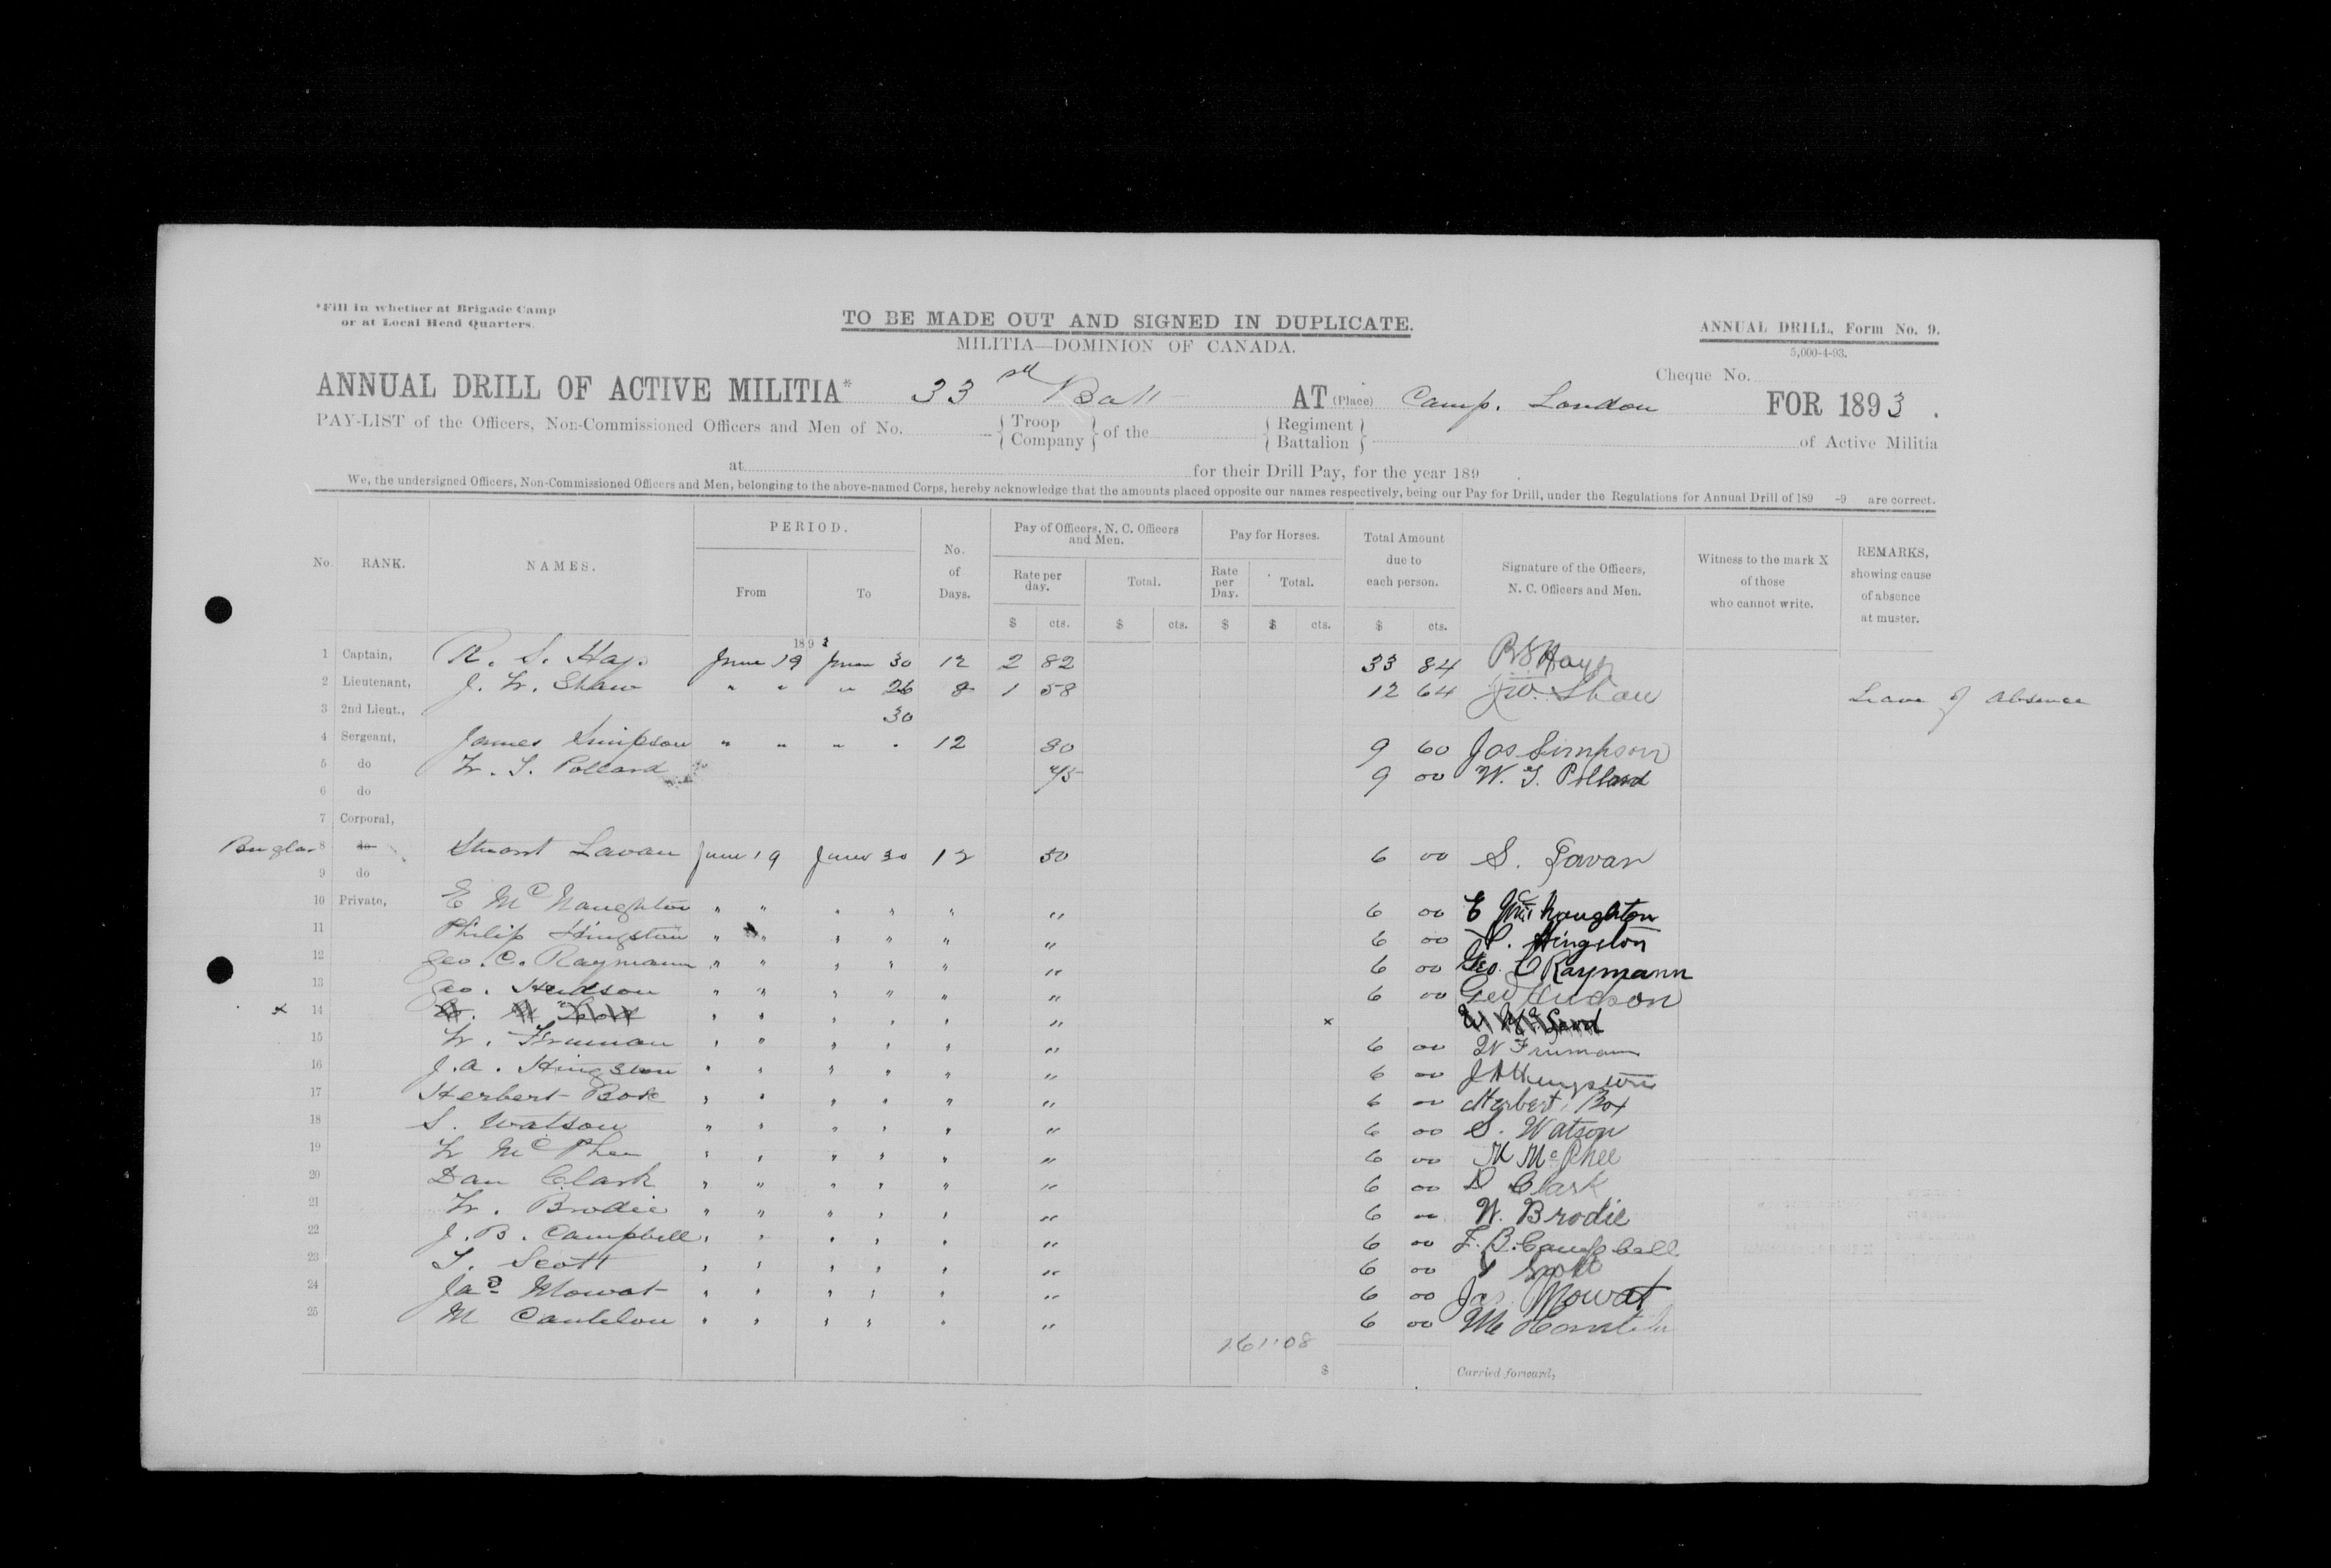 *Fill in whether at Brigade Camp
or at Local Head Quarters.
TO BE MADE OUT AND SIGNED IN DUPLICATE.
MILITIA—DOMINION OF CANADA.
ANNUAL DRILL, Form No. 9.
5,000-4-93.
Cheque No.
ANNUAL DRILL OF ACTIVE MILITIA* 33rd Batt AT (Place) Camp. London FOR 1893.
PAY-LIST of the Officers, Non-Commissioned Officers and Men of No. { Troop Company } of the { Regiment Battalion } of Active Militia
at for their Drill Pay, for the year 189 .
We, the undersigned Officers, Non-Commissioned Officers and Men, belonging to the above-named Corps, hereby acknowledge that the amounts placed opposite our names respectively, being our Pay for Drill, under the Regulations for Annual Drill of 189 -9 are correct.
No. RANK. NAMES. PERIOD. From To No. of Days. Pay of Officers, N. C. Officers and Men. Rate per day. Total. Pay for Horses. Rate per Day. Total. Total Amount due to each person. Signature of the Officers, N. C. Officers and Men. Witness to the mark X of those who cannot write. REMARKS, showing cause of absence at muster.
$ cts. $ cts. $ $ cts. $ cts.
1893
1 Captain, R. S. Hays June 19 June 30 12 2 82 33 84 R S Hays
2 Lieutenant, J. W. Shaw " " " 26 8 1 58 12 64 J. W. Shaw Leave of Absence
3 2nd Lieut., 30
4 Sergeant, James Simpson " " " " 12 80 9 60 Jas Simpson
5 do W. T. Pollard 75 9 00 W. T. Pollard
6 do
7 Corporal,
Bugler 8 do Stuart Lavan June 19 June 30 12 50 6 00 S. Lavan
9 do
10 Private, E McNaughton " " " " " " 6 00 E McNaughton
11 Philip Hingston " " " " " " 6 00 P. Hingston
12 Geo. C. Raymann " " " " " " 6 00 Geo. C Raymann
13 Geo. Hudson " " " " " " 6 00 Geo Hudson
x 14 " " " " " " x
15 W. Fruman " " " " " " 6 00 W Frumann
16 J. A. Hingston " " " " " " 6 00 J A Hingston
17 Herbert Box " " " " " " 6 00 Herbert Box
18 S. Watson " " " " " " 6 00 S. Watson
19 W McPhee " " " " " " 6 00 McPhee
20 Dan Clark " " " " " " 6 00 D Clark
21 W. Brodie " " " " " " 6 00 W. Brodie
22 J. B. Campbell " " " " " " 6 00 J. B. Campbell
23 T. Scott " " " " " " 6 00 Scott
24 Jas Mowat " " " " " " 6 00 Jas Mowat
25 M Cantelon " " " " " " 6 00 M Cantelon
161.08
$ Carried forward,